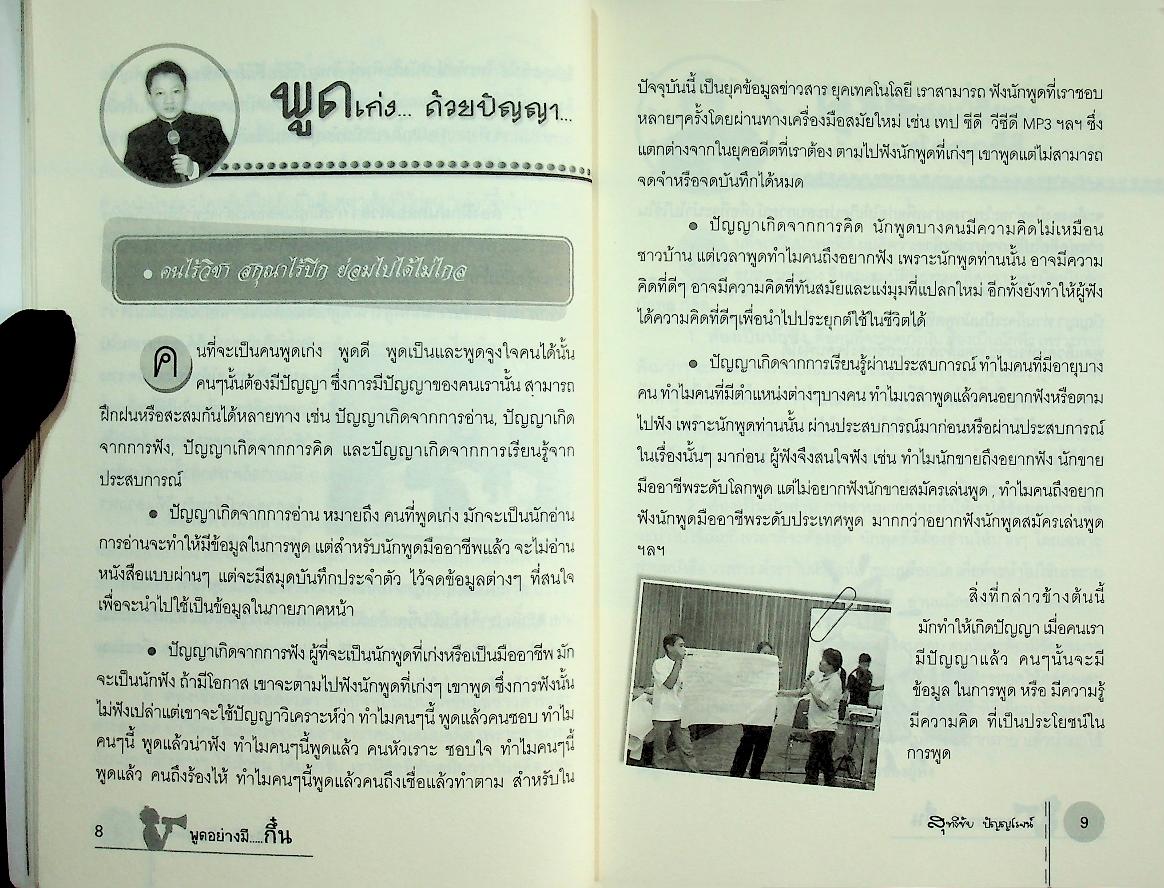 พูดเก่ง... ด้วยปัญญา...
• คนไร้วิชา สกุณาไร้ปีก ย่อมไปได้ไม่ไกล
คนที่จะเป็นคนพูดเก่ง พูดดี พูดเป็นและพูดจูงใจคนได้นั้น
คนๆนั้นต้องมีปัญญา ซึ่งการมีปัญญาของคนเรานั้น สามารถ
ฝึกฝนหรือสะสมกันได้หลายทาง เช่น ปัญญาเกิดจากการอ่าน, ปัญญาเกิด
จากการฟัง, ปัญญาเกิดจากการคิด และปัญญาเกิดจากการเรียนรู้จาก
ประสบการณ์
● ปัญญาเกิดจากการอ่าน หมายถึง คนที่พูดเก่ง มักจะเป็นนักอ่าน
การอ่านจะทำให้มีข้อมูลในการพูด แต่สำหรับนักพูดมืออาชีพแล้ว จะไม่อ่าน
หนังสือแบบผ่านๆ แต่จะมีสมุดบันทึกประจำตัว ไว้จดข้อมูลต่างๆ ที่สนใจ
เพื่อจะนำไปใช้เป็นข้อมูลในภายภาคหน้า
● ปัญญาเกิดจากการฟัง ผู้ที่จะเป็นนักพูดที่เก่งหรือเป็นมืออาชีพ มัก
จะเป็นนักฟัง ถ้ามีโอกาส เขาจะตามไปฟังนักพูดที่เก่งๆ เขาพูด ซึ่งการฟังนั้น
ไม่ฟังเปล่าแต่เขาจะใช้ปัญญาวิเคราะห์ว่า ทำไมคนๆนี้ พูดแล้วคนชอบ ทำไม
คนๆนี้ พูดแล้วน่าฟัง ทำไมคนๆนี้พูดแล้ว คนหัวเราะ ชอบใจ ทำไมคนๆนี้
พูดแล้ว คนถึงร้องไห้ ทำไมคนๆนี้พูดแล้วคนถึงเชื่อแล้วทำตาม สำหรับใน
8 พูดอย่างมี.....กึ๋น
ปัจจุบันนี้ เป็นยุคข้อมูลข่าวสาร ยุคเทคโนโลยี เราสามารถ ฟังนักพูดที่เราชอบ
หลายๆครั้งโดยผ่านทางเครื่องมือสมัยใหม่ เช่น เทป ซีดี วีซีดี MP3 ฯลฯ ซึ่ง
แตกต่างจากในยุคอดีตที่เราต้อง ตามไปฟังนักพูดที่เก่งๆ เขาพูดแต่ไม่สามารถ
จดจำหรือจดบันทึกได้หมด
● ปัญญาเกิดจากการคิด นักพูดบางคนมีความคิดไม่เหมือน
ชาวบ้าน แต่เวลาพูดทำไมคนถึงอยากฟัง เพราะนักพูดท่านนั้น อาจมีความ
คิดที่ดีๆ อาจมีความคิดที่ทันสมัยและแง่มุมที่แปลกใหม่ อีกทั้งยังทำให้ผู้ฟัง
ได้ความคิดที่ดีๆเพื่อนำไปประยุกต์ใช้ในชีวิตได้
● ปัญญาเกิดจากการเรียนรู้ผ่านประสบการณ์ ทำไมคนที่มีอายุบาง
คน ทำไมคนที่มีตำแหน่งต่างๆบางคน ทำไมเวลาพูดแล้วคนอยากฟังหรือตาม
ไปฟัง เพราะนักพูดท่านนั้น ผ่านประสบการณ์มาก่อนหรือผ่านประสบการณ์
ในเรื่องนั้นๆ มาก่อน ผู้ฟังจึงสนใจฟัง เช่น ทำไมนักขายถึงอยากฟัง นักขาย
มืออาชีพระดับโลกพูด แต่ไม่อยากฟังนักขายสมัครเล่นพูด , ทำไมคนถึงอยาก
ฟังนักพูดมืออาชีพระดับประเทศพูด มากกว่าอยากฟังนักพูดสมัครเล่นพูด
ฯลฯ
สิ่งที่กล่าวข้างต้นนี้
มักทำให้เกิดปัญญา เมื่อคนเรา
มีปัญญาแล้ว คนๆนั้นจะมี
ข้อมูล ในการพูด หรือ มีความรู้
มีความคิด ที่เป็นประโยชน์ใน
การพูด
สุทธิชัย ปัญญโรจน์ 9